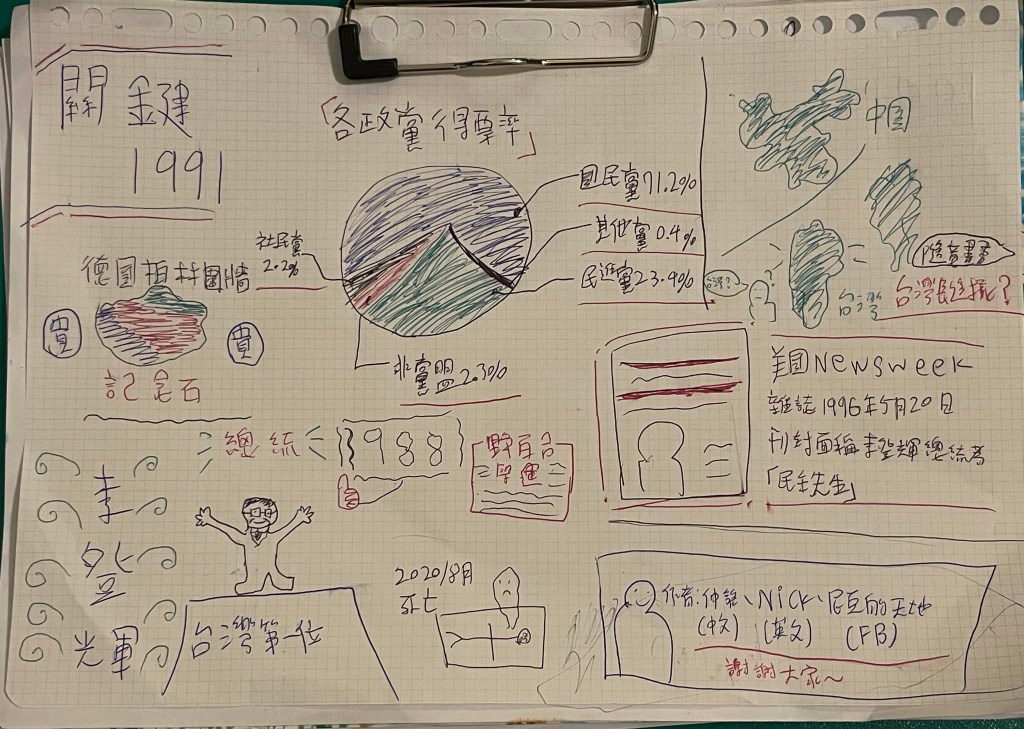 關鍵
1991
「各政黨得票率」
國民黨71.2%
其他黨0.4%
民進黨23.9%
社民黨
2.2%
非黨盟2.3%
中国
台灣
台灣?
?
台灣民進擋?
德國柏林圍牆
賣
賣
記念石
總統
1988
野百合
學運
美国Newsweek
雜誌1996年5月20日
刊封面稱李登輝總統為
「民主先生」
李
登
輝
台灣第一位
2020/8月
死亡
作者:仲銘、Nick、尼克的天地
(中文) (英文) (FB)
謝謝大家~